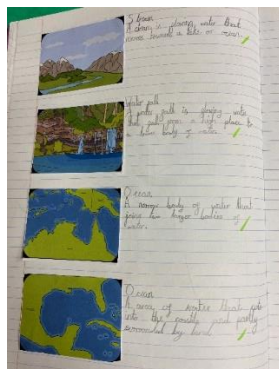 Stream
A stream is flowing water that
moves towards a lake or river.
Water fall
A water fall is flowing water
that falls from a high place to
a lower body of water.
Ocean
A narrow body of water that
joins two larger bodies of
water.
Ocean
A area of water that
into the and partly
surrounded by land.